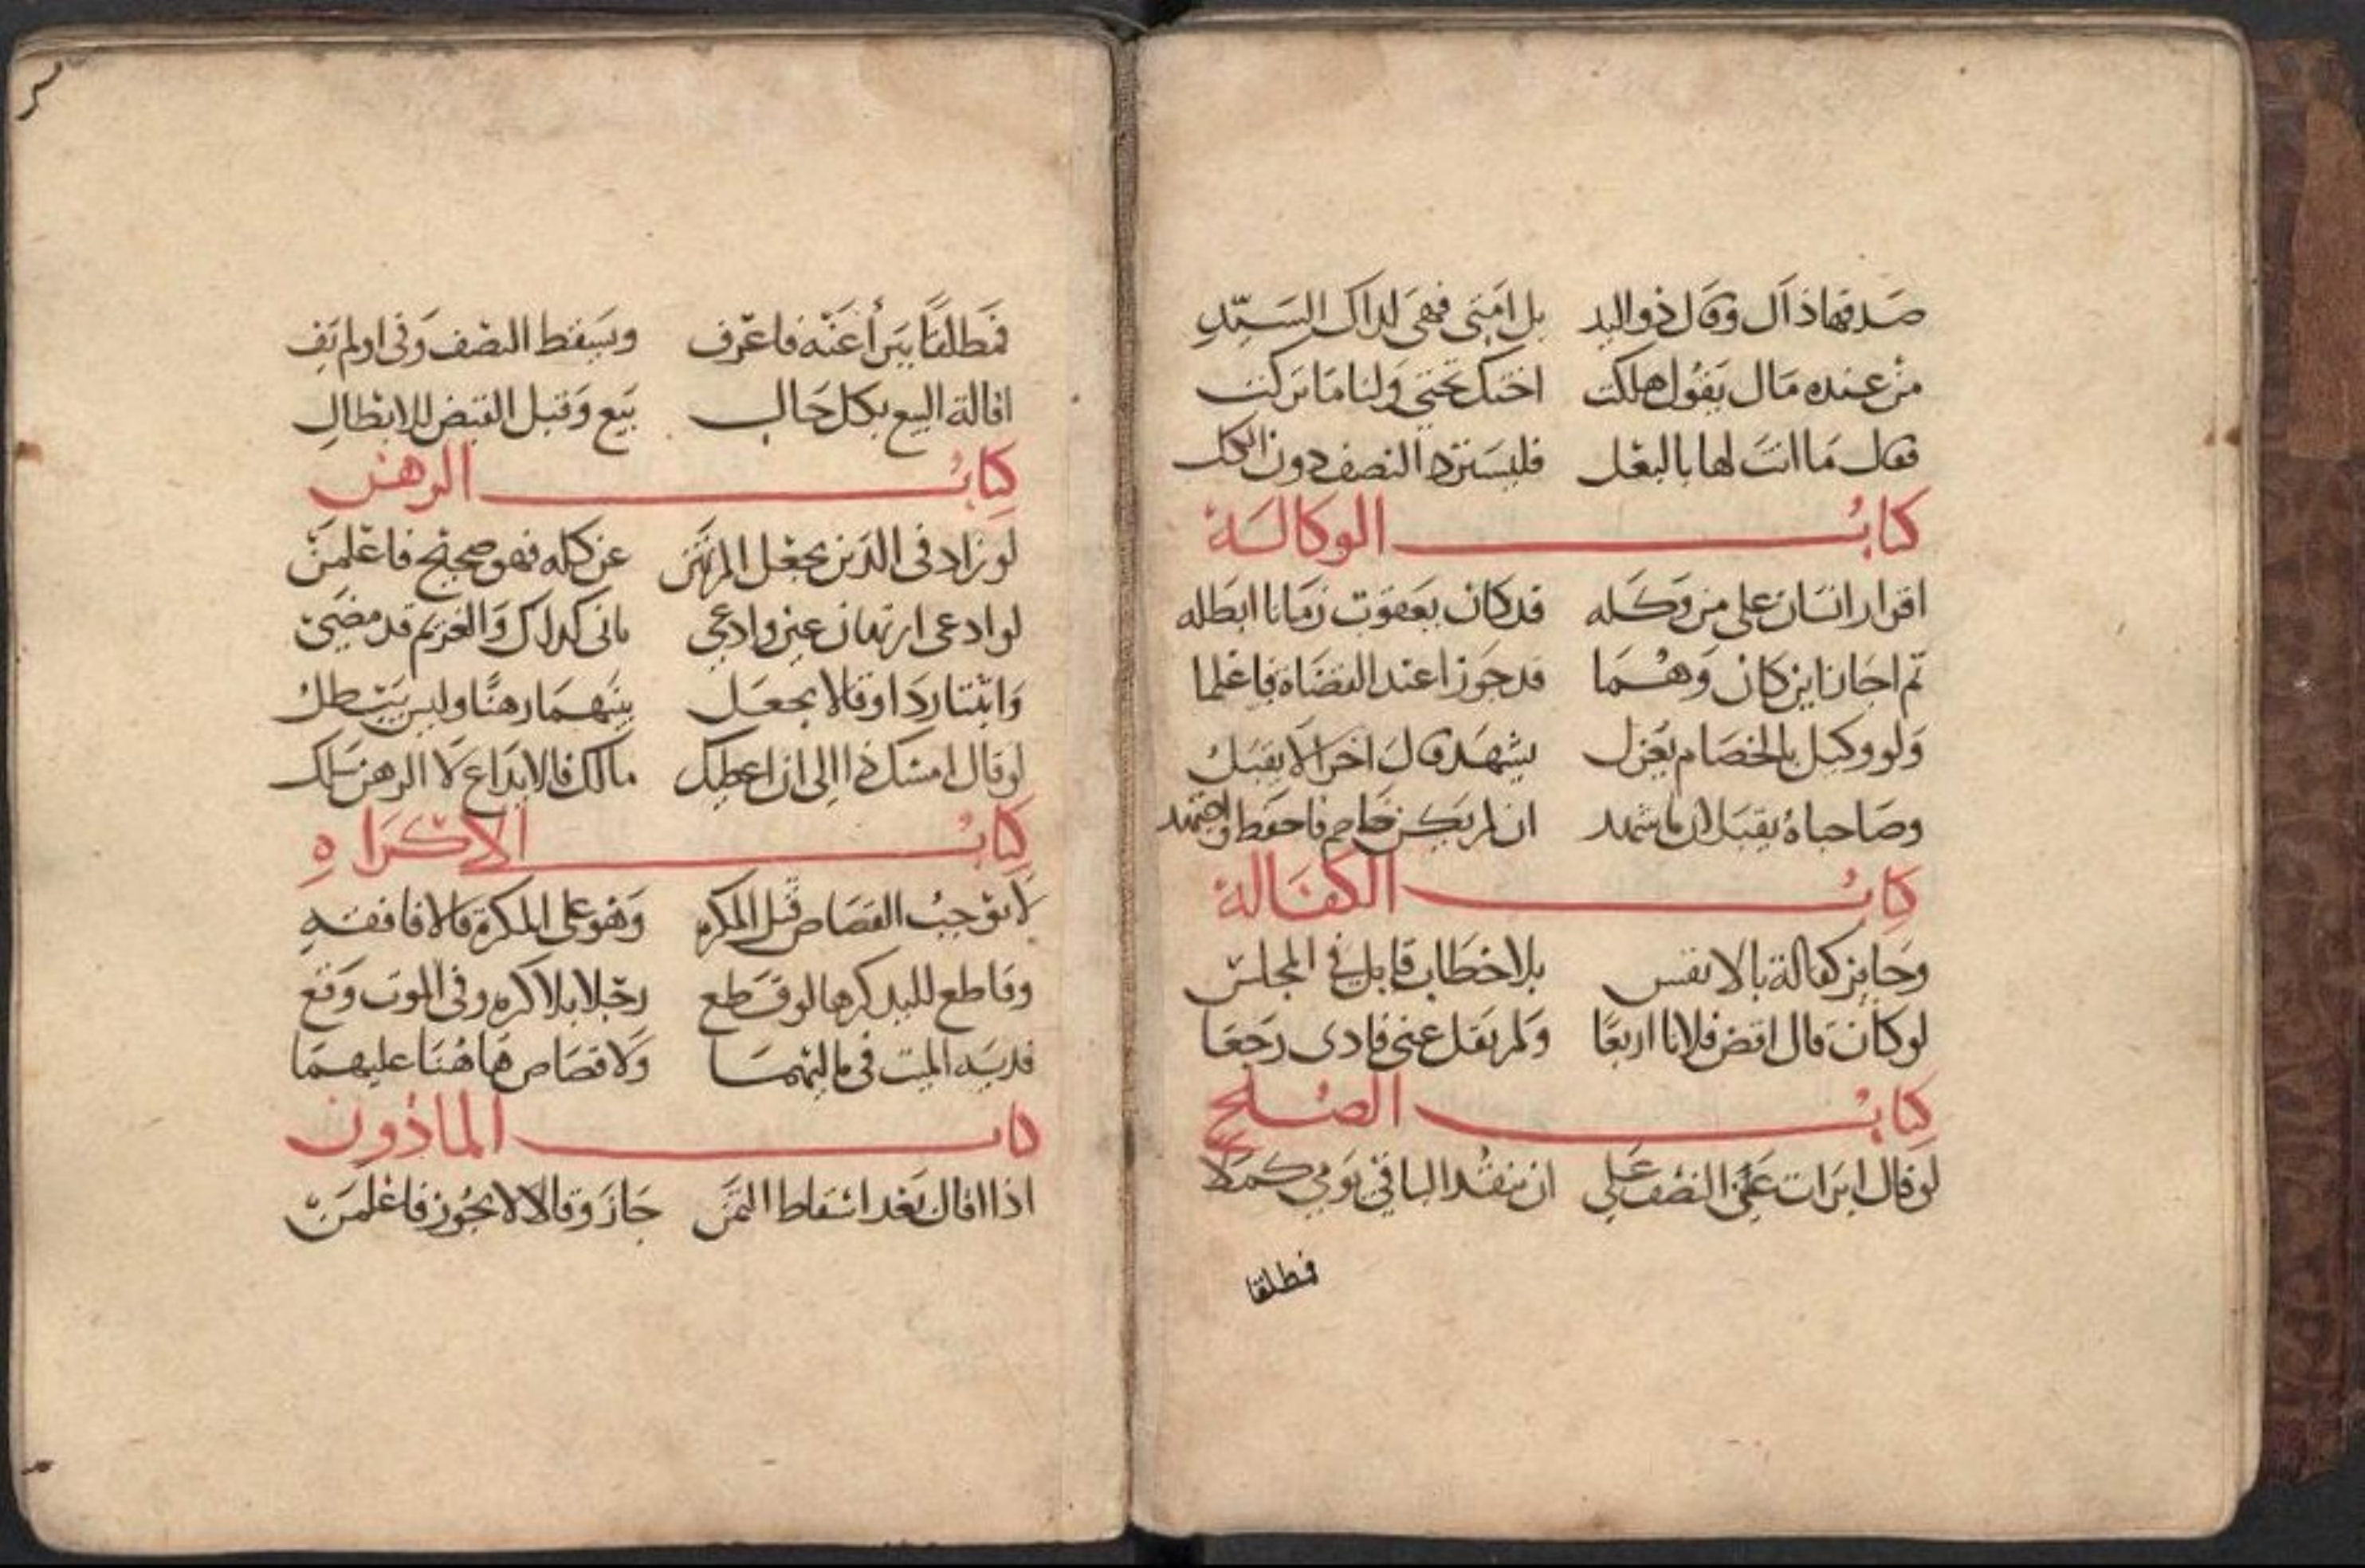 صدقها ذاك وقال ذو اليد بل امتى فهى لذاك السيد
من عنده مال يقول هلكت اختك تحتي ولنا ما تركت
فقال ما انت لها بالبعل فليسترد النصف دون الكل
كتاب الوكالة
اقرار انسان على من وكله قد كان يعقوب زمانا ابطله
ثم اجازا اين كان وهما قد جوزا عند القضاة فاعلما
ولو وكيل بالخصام يعزل يشهد قال اخرا لا يقبل
وصاحباه يقبلان ما شهد ان لم يكن خاصم فاحفظ واجتهد
كتاب الكفالة
وجايز كفالة بالانفس بلا خطاب قابل في المجلس
لو كان قال اقض فلانا اربعا ولم يقل عنى فادى رجعا
كتاب الصلح
لو قال ابرات عن النصف على ان ينقد الباقي يومي كملا
فمطلقا
فمطلقا يبرأ عنه فاعرف ويسقط النصف وفى اولم يف
اقالة البيع بكل حال بيع وقبل القبض للابطال
كتاب الرهن
لو زاد فى الدين بجعل المرتهن عن كله فهو صحيح فاعلمن
لو ادعى ارتهان عين وادعى ثانى كذاك والغريم قد مضى
واثبتا ردا وقالا يجعل بينهما رهنا وليس يبطل
لو قال امسك ذا الى ان اعطيك مالك فالايداع لا الرهن سلك
كتاب الاكراه
لا يوجب القصاص قبل المكره وهو على المكره قالا فافقه
وقاطع لليد كرها لو قطع رجلا بلا كره وفى الموت وقع
فدية الميت فى ماليهما ولا قصاص هاهنا عليهما
كتاب الماذون
اذا اقال بعد اسقاط الثمن جاز وقالا لا يجوز فاعلمن